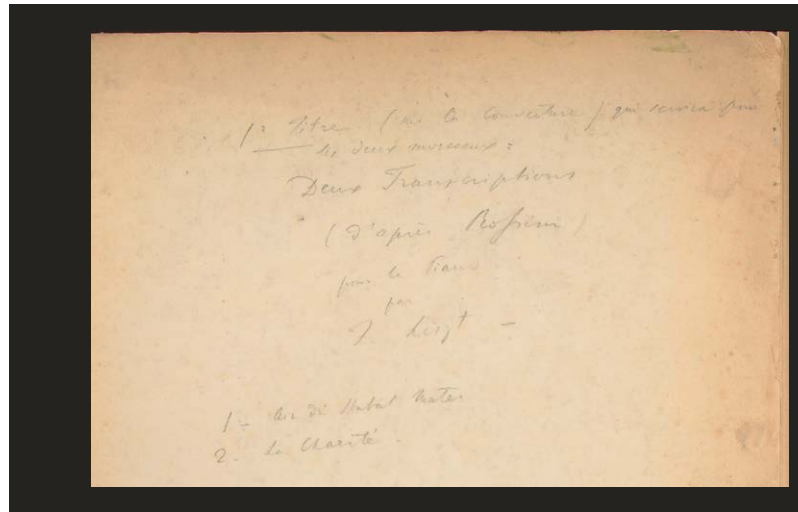 1º Titre (sur la Couverture) qui servira pour
les deux morceaux :
Deux Transcriptions
(d'après Rossini)
pour le Piano
par
F. Liszt –
1 – Air du Stabat Mater
2. La Charité.